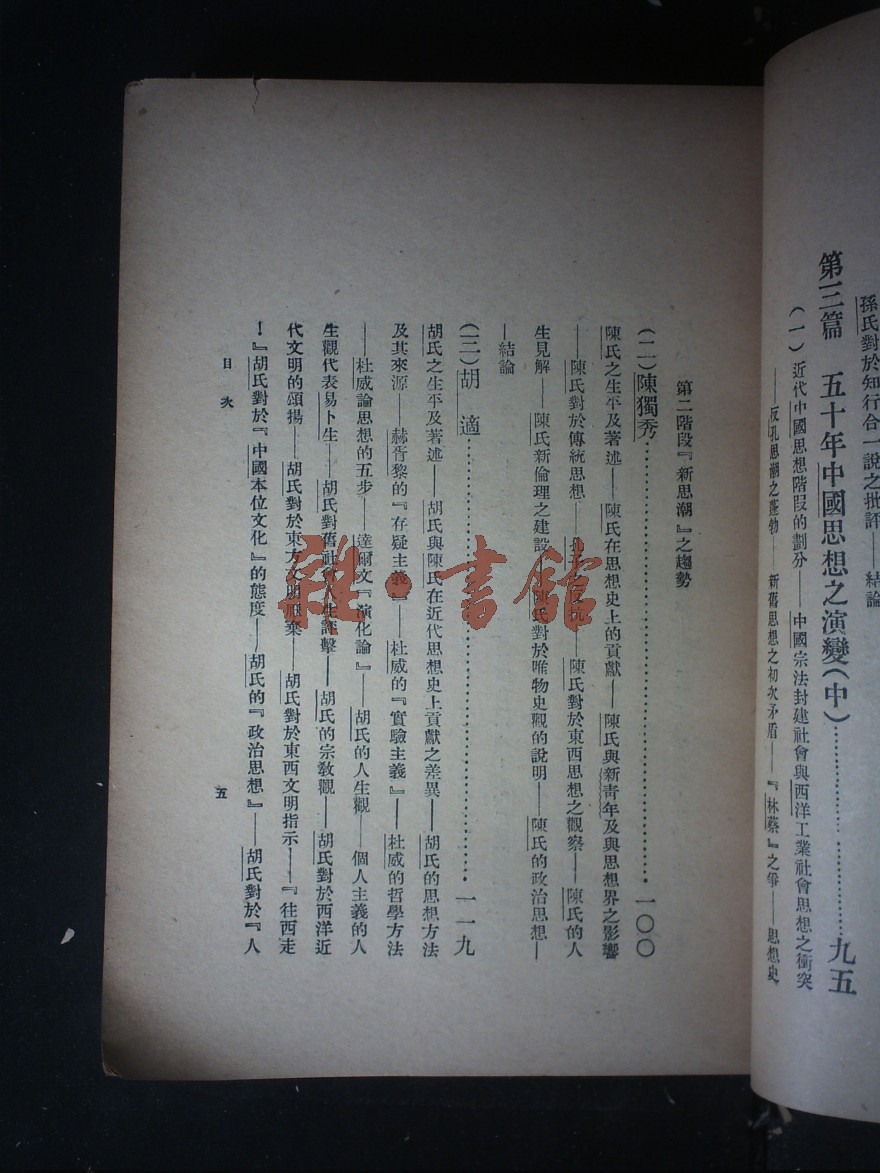 孫氏對於知行合一說之批評——結論
第三篇　五十年中國思想之演變(中)……………九五
(一)近代中國思想階段的劃分——中國宗法封建社會與西洋工業社會思想之衝突
——反孔思潮之蓬勃——新舊思想之初次矛盾——『林蔡』之爭——思想史
第二階段『新思潮』之趨勢
(二)陳獨秀……………一〇〇
陳氏之生平及著述——陳氏在思想史上的貢獻——陳氏與新青年及與思想界之影響
——陳氏對於傳統思想——孔子之反抗——陳氏對於東西思想之觀察——陳氏的人
生見解——陳氏新倫理之建設——陳氏對於唯物史觀的說明——陳氏的政治思想—
—結論
(三)胡適……………一一九
胡氏之生平及著述——胡氏與陳氏在近代思想史上貢獻之差異——胡氏的思想方法
及其來源——赫胥黎的『存疑主義』——杜威的『實驗主義』——杜威的哲學方法
——杜威論思想的五步——達爾文『演化論』——胡氏的人生觀——個人主義的人
生觀代表易卜生——胡氏對舊社會 評擊——胡氏的宗教觀——胡氏對於西洋近
代文明的頌揚——胡氏對於東方文明 棄——胡氏對於東西文明指示——『往西走
！』胡氏對於『中國本位文化』的態度——胡氏的『政治思想』——胡氏對於『人
目次
五
雜·書館